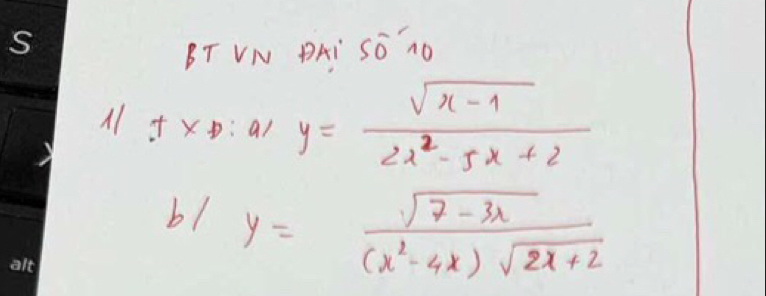 S
BTVN ĐẠI SỐ 10
1/ TXĐ: a/ y = \frac{\sqrt{x-1}}{2x^2-5x+2}
b/ y = \frac{\sqrt{7-3x}}{(x^2-4x)\sqrt{2x+2}}
alt